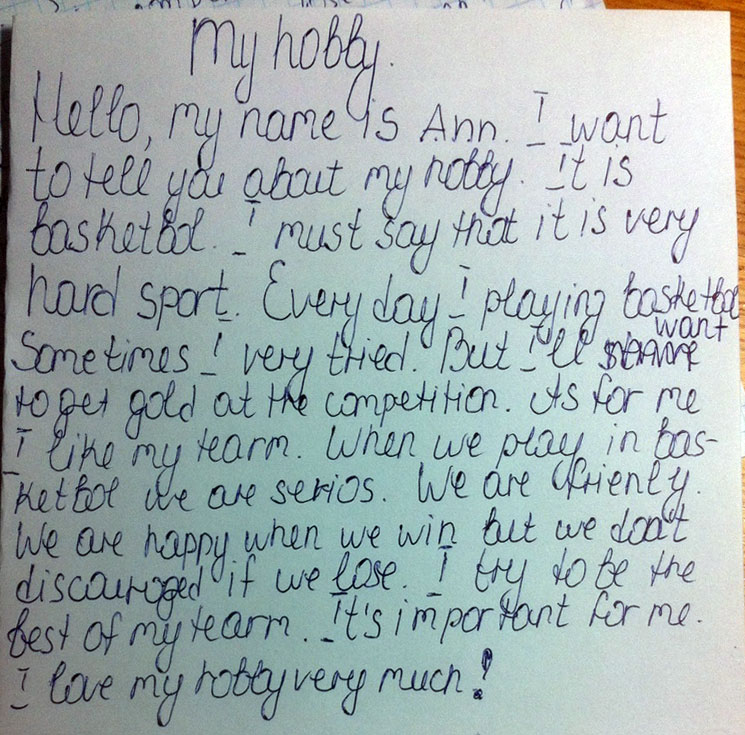 My hobby.
Hello, my name is Ann. I want
to tell you about my hobby. It is
basketbol. I must say that it is very
hard sport. Every day I playing basketbol
Sometimes I very tried. But I'll want
to get gold at the competition. As for me
I like my tearm. When we play in bas-
ketbol we are serios. We are friently.
We are happy when we win but we don't
discouroged if we lose. I try to be the
best of my tearm. It's important for me.
I love my hobby very much!